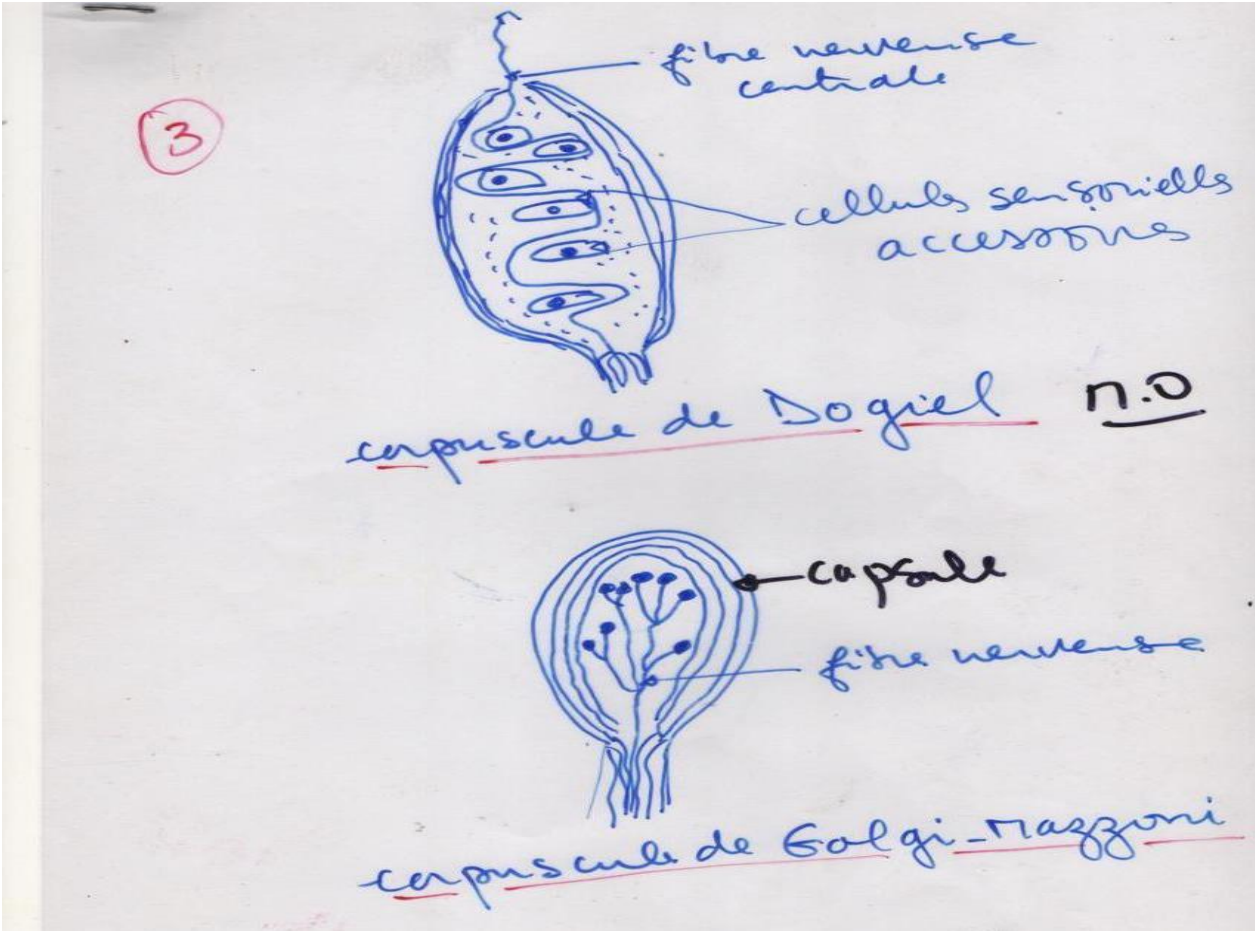 3
fibre nerveuse
centrale
cellules sensorielles
accessoires
corpuscule de Dogiel M.O
capsule
fibre nerveuse
corpuscule de Golgi-Mazzoni